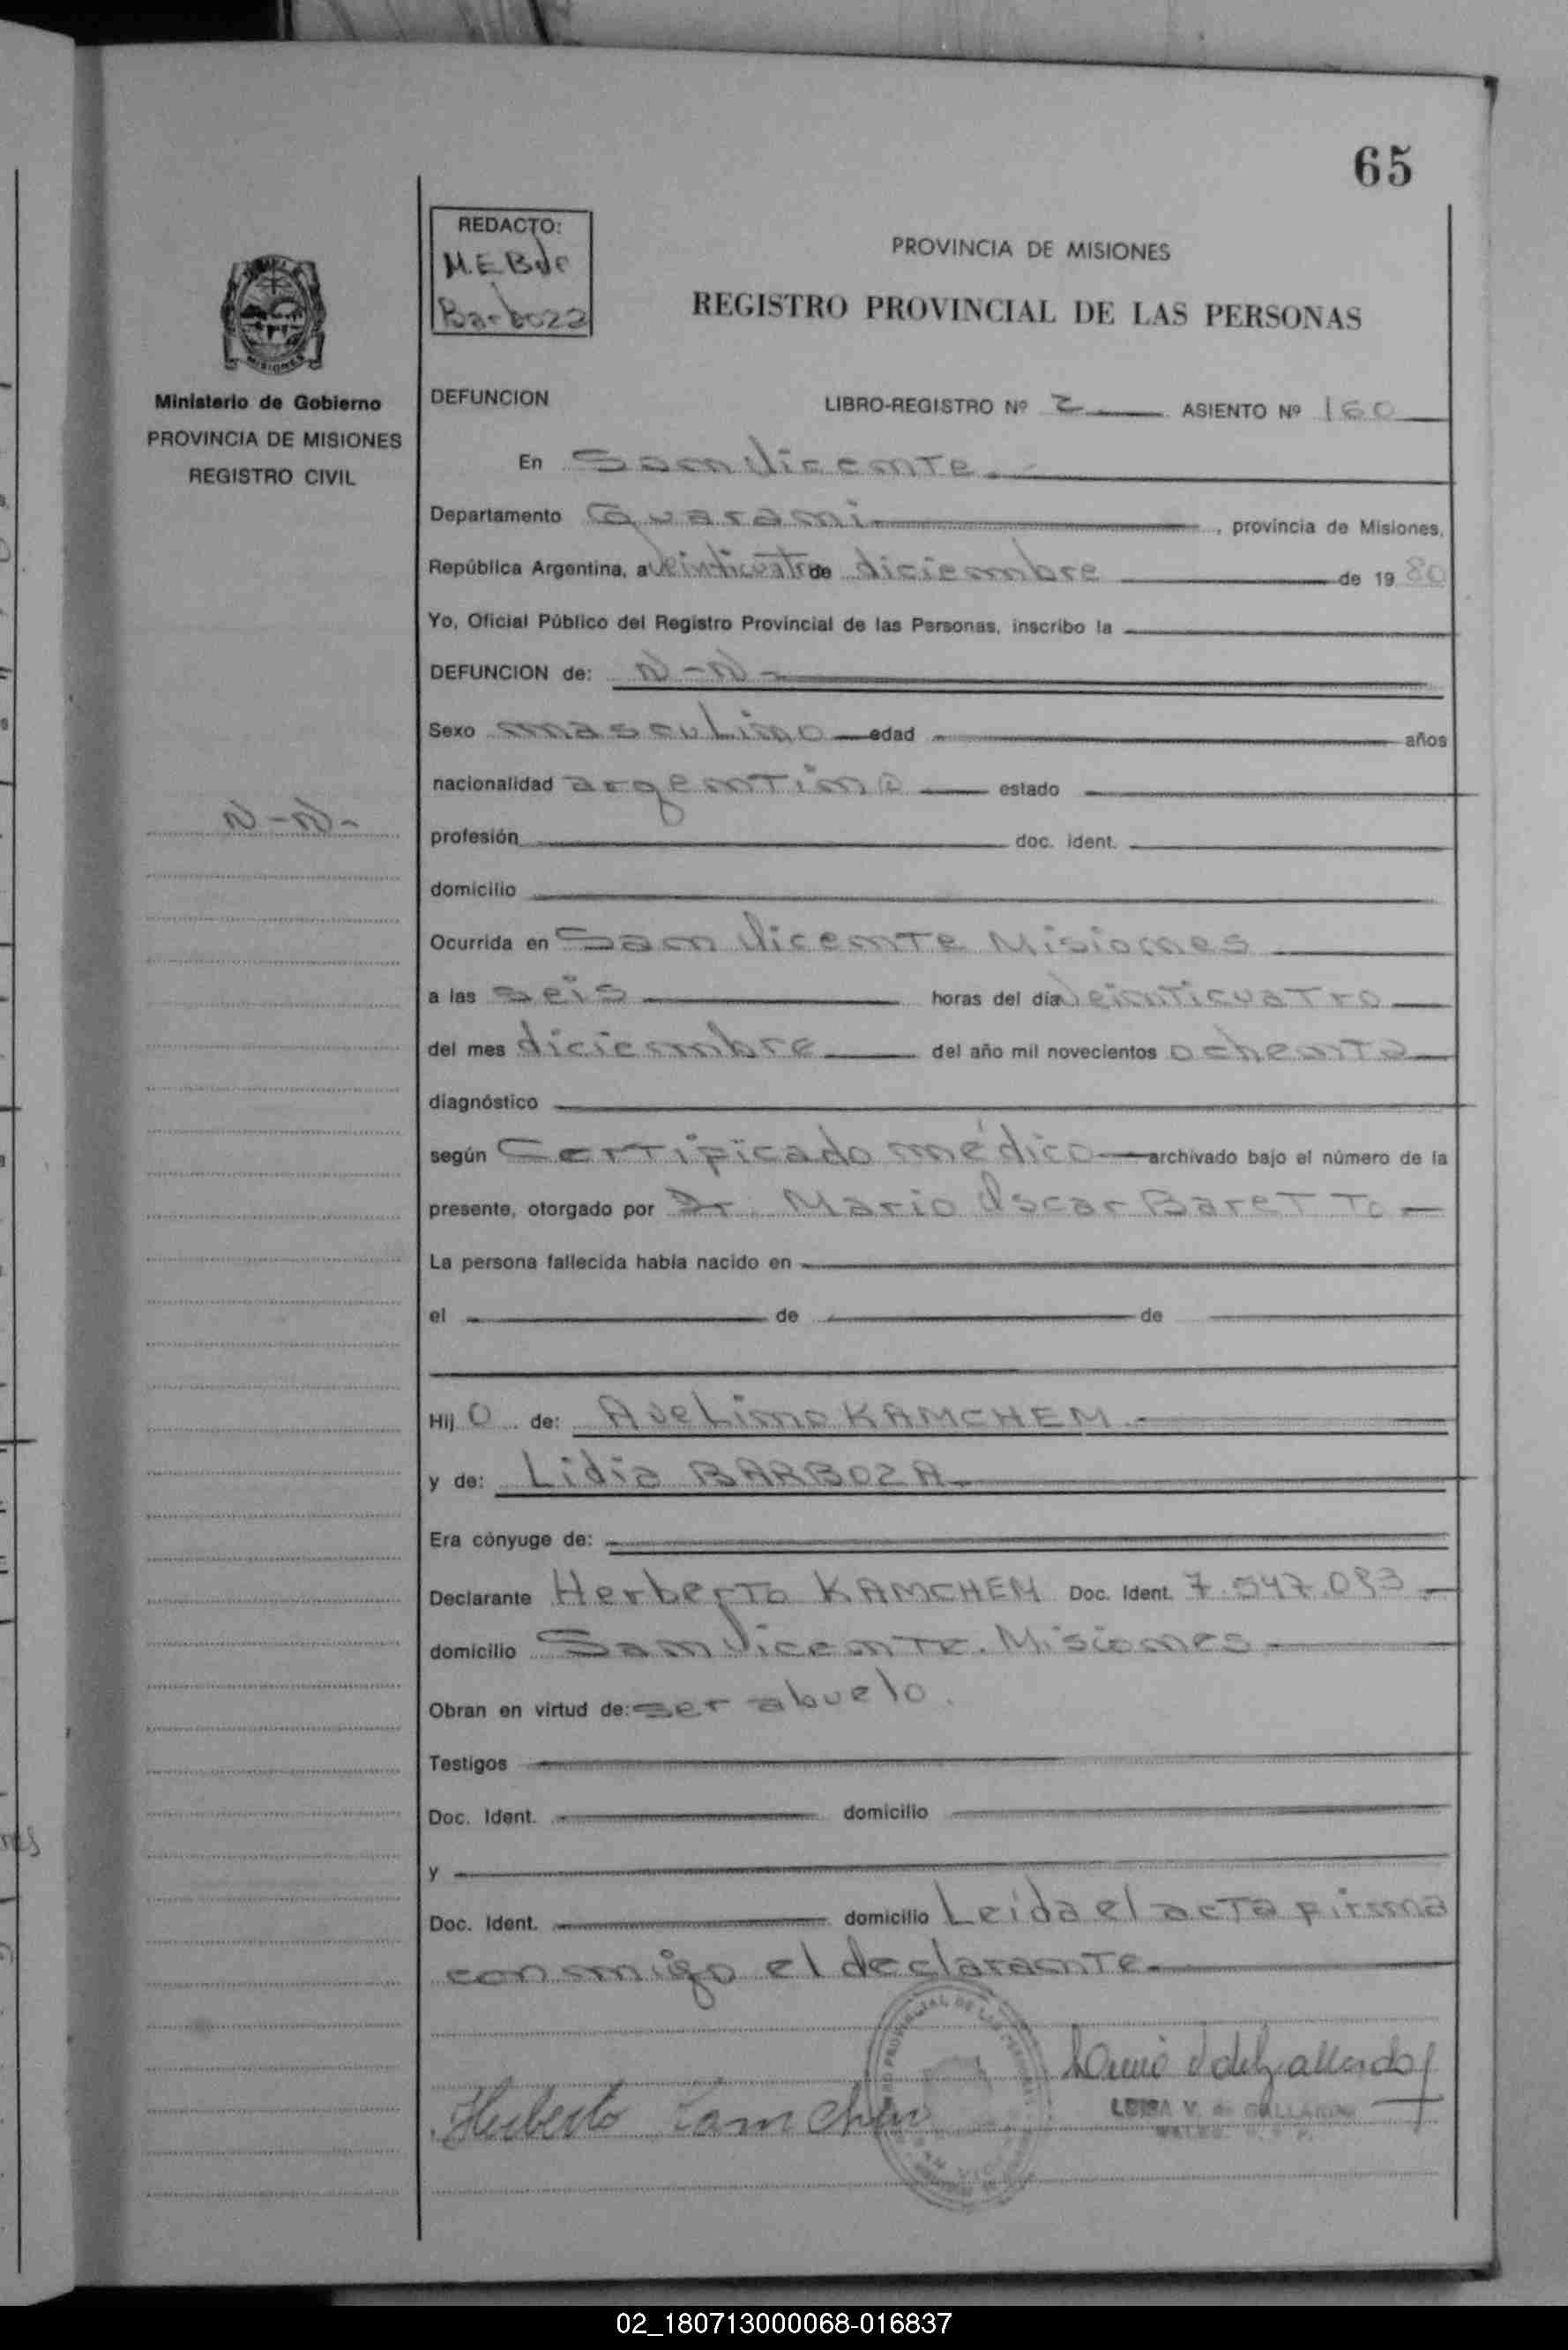 65
REDACTO:
M.E.B de
Barboza
PROVINCIA DE MISIONES
REGISTRO PROVINCIAL DE LAS PERSONAS
MISIONES
Ministerio de Gobierno
PROVINCIA DE MISIONES
REGISTRO CIVIL
N-N-
DEFUNCION LIBRO-REGISTRO Nº 2 ASIENTO Nº 160
En San Vicente.
Departamento Guarani , provincia de Misiones,
República Argentina, a Veinticuatro de diciembre de 19 80
Yo, Oficial Público del Registro Provincial de las Personas, inscribo la
DEFUNCION de: N-N-
Sexo masculino edad años
nacionalidad argentina estado
profesión doc. ident.
domicilio
Ocurrida en San Vicente Misiones
a las seis horas del día Veinticuatro
del mes diciembre del año mil novecientos ochenta
diagnóstico
según Certificado médico archivado bajo el número de la
presente, otorgado por Dr. Mario Oscar Baretto
La persona fallecida había nacido en
el de de
Hij o de: Avelino KAMCHEM
y de: Lidia BARBOZA
Era cónyuge de:
Declarante Herberto KAMCHEM Doc. Ident. 7.547.083
domicilio San Vicente. Misiones
Obran en virtud de: ser abuelo.
Testigos
Doc. Ident. domicilio
y
Doc. Ident. domicilio Leida el acta firma
conmigo el declarante.
Herberto Kamchen
LUISA V. de GALLARDO
02_180713000068-016837